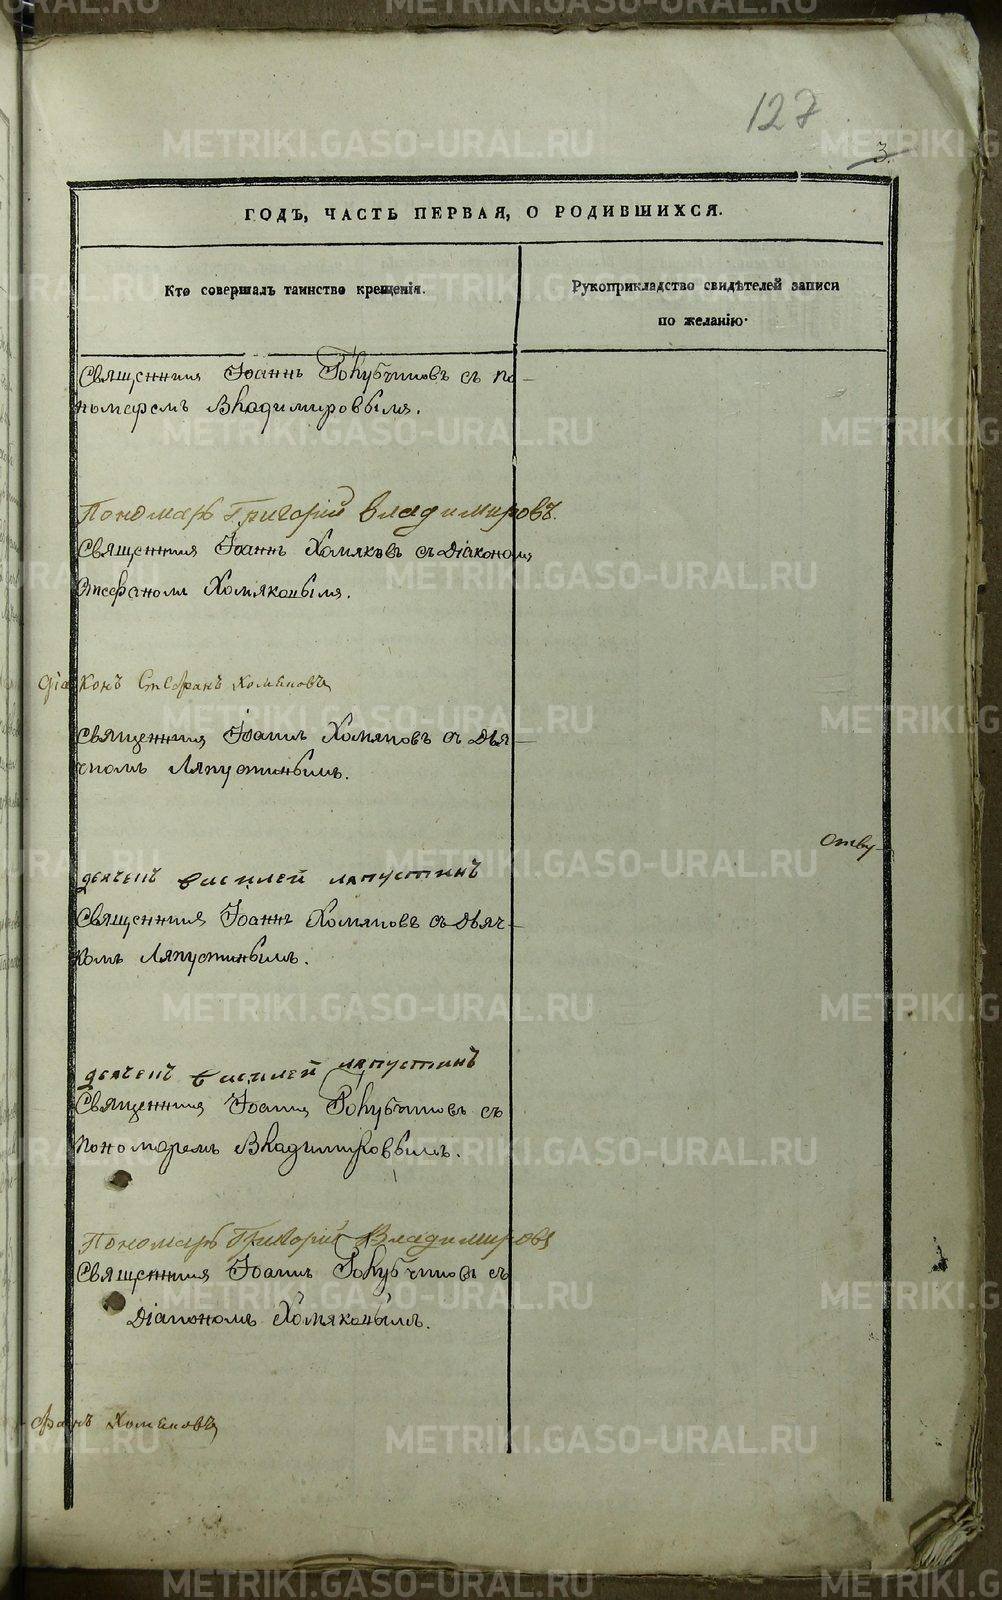 127
3.
ГОДЪ, ЧАСТЬ ПЕРВАЯ, О РОДИВШИХСЯ.
Кто совершалъ таинство крещенія.
Рукоприкладство свидѣтелей записи
по желанію.
Священникъ Іоаннъ Голубчиковъ съ по-
номаремъ Владимировымъ.
Пономарь Григорій Владимировъ.
Священникъ Іоаннъ Хомяковъ съ Діакономъ
Стефаномъ Хомяковымъ.
Діаконъ Стефанъ Хомяковъ
Священникъ Іоаннъ Хомяковъ съ Дья-
чкомъ Ляпустинымъ.
Отву-
деячекъ василей ляпустинъ
Священникъ Іоаннъ Хомяковъ съ Дьяч-
комъ Ляпустинымъ.
деячекъ василей ляпустинъ
Священникъ Іоаннъ Голубчиковъ съ
пономаремъ Владимировымъ.
Пономарь Григорій Владимировъ
Священникъ Іоаннъ Голубчиковъ съ
Діакономъ Хомяковымъ.
фанъ Хомяковъ
METRIKI.GASO-URAL.RU